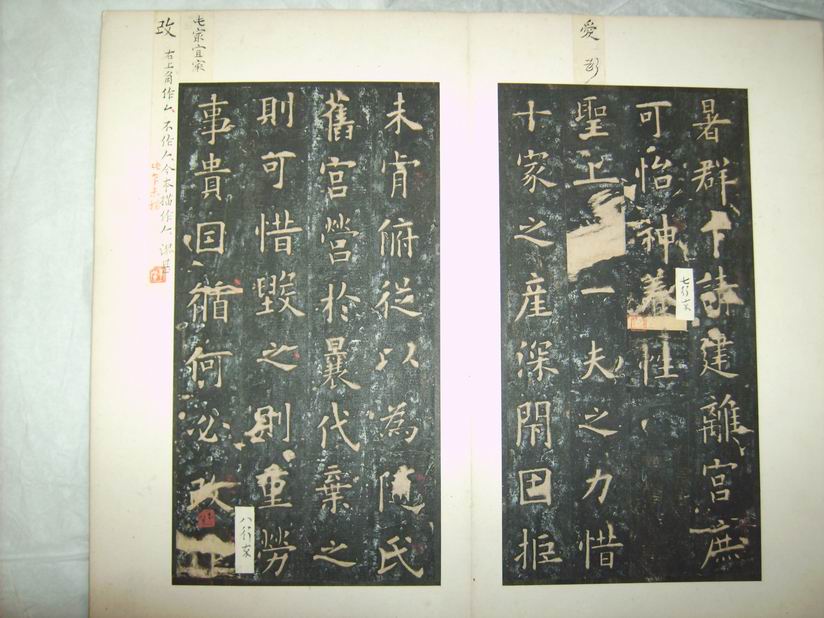 愛
暑群下請建離宮庶
可怡神養性
聖上一夫之力惜
十家之産深閇固拒
七行末
未肯俯從以為隨氏
舊宮營於曩代棄之
則可惜毀之則重勞
事貴因循何必改作
八行末
改
右上角作𠂉不作人今本描作人